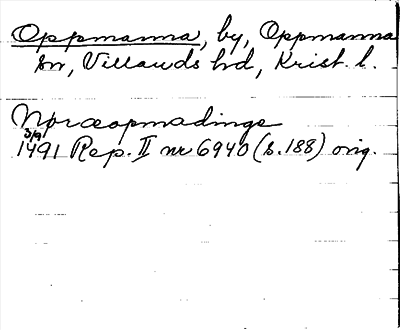 Oppmanna, by, Oppmanna
sn, Villands hd, Krist. l.
Noræopmadinge
3/9
1491 Rep. II nr 6940 (s. 188) orig.